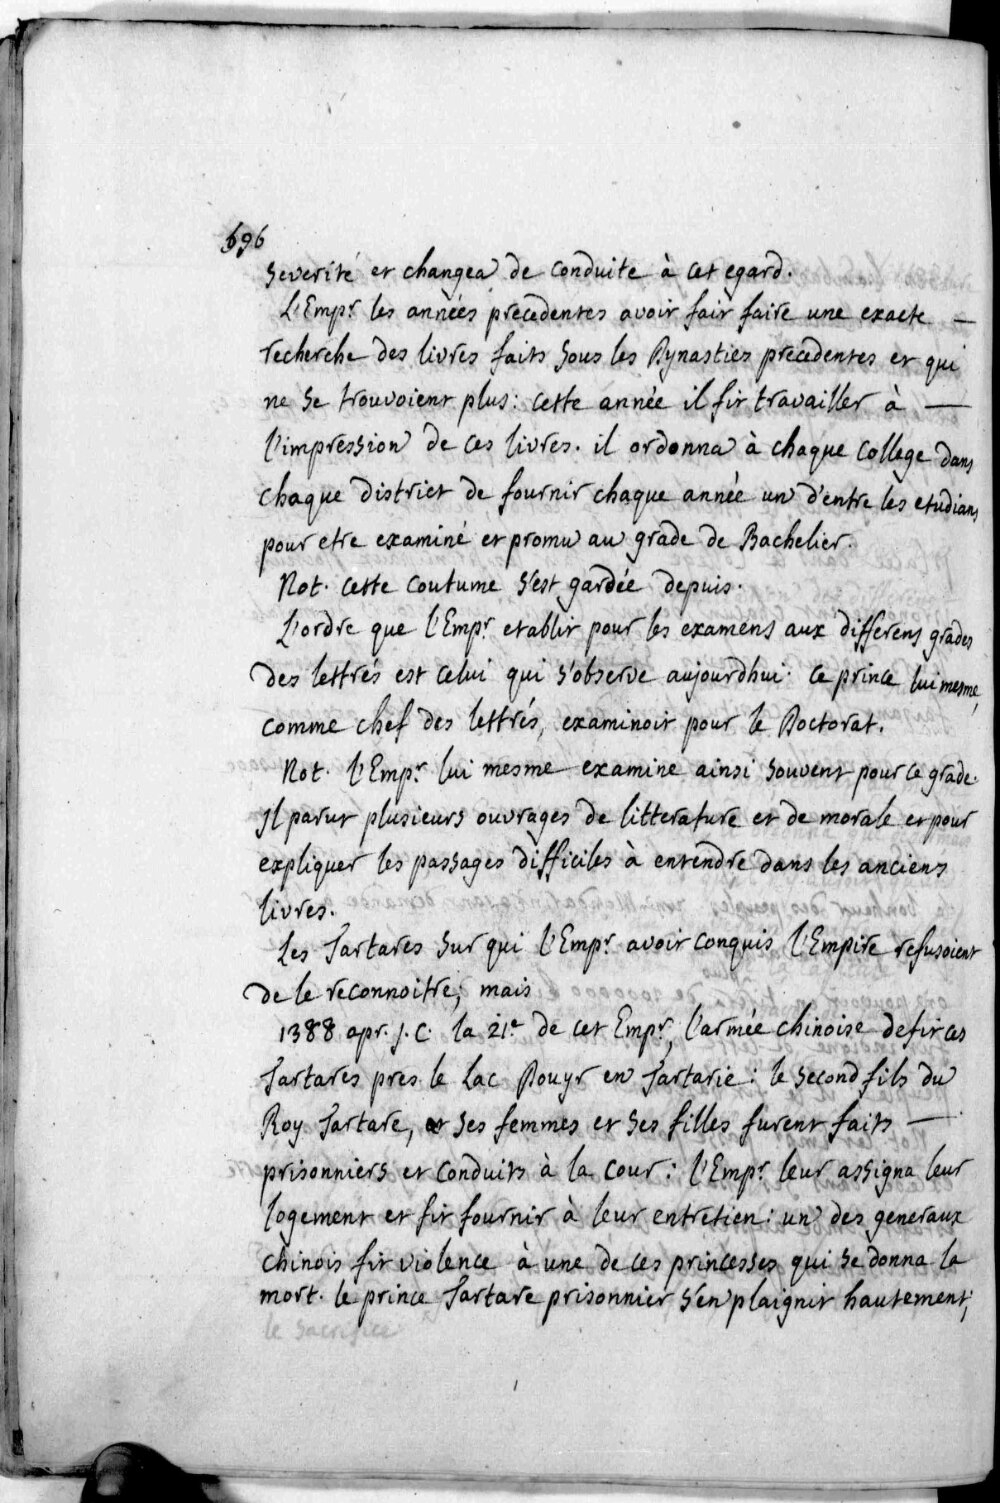 696
severité et changea de conduite à cet egard.
L'Emp.r les années precedentes avoit fait faire une exacte —
recherche des livres faits sous les Dynasties precedentes et qui
ne se trouvoient plus: cette année il fit travailler à —
l'impression de ces livres. il ordonna à chaque college dans
chaque district de fournir chaque année un d'entre les etudians
pour etre examiné et promu au grade de Bachelier.
Not. cette coutume s'est gardée depuis.
L'ordre que l'Emp.r etablit pour les examens aux differens grades
des lettrés est celui qui s'observe aujourdhui. ce prince lui mesme,
comme chef des lettrés, examinoit pour le Doctorat.
Not. l'Emp.r lui mesme examine ainsi souvent pour ce grade.
Il parut plusieurs ouvrages de litterature et de morale et pour
expliquer les passages difficiles à entendre dans les anciens
livres.
Les Tartares sur qui l'Emp.r avoit conquis l'Empire refusoient
de le reconnoitre; mais
1388 apr. J. C. la 21.e de cet Emp.r, l'armée chinoise defit ces
Tartares pres le Lac Bouyr en Tartarie: le second fils du
Roy Tartare, ses femmes et ses filles furent faits —
prisonniers et conduits à la cour: l'Emp.r leur assigna leur
logement et fit fournir à leur entretien: un des generaux
chinois fit violence à une de ces princesses qui se donna la
mort. le prince Tartare prisonnier s'en plaignit hautement;
le sacrifice